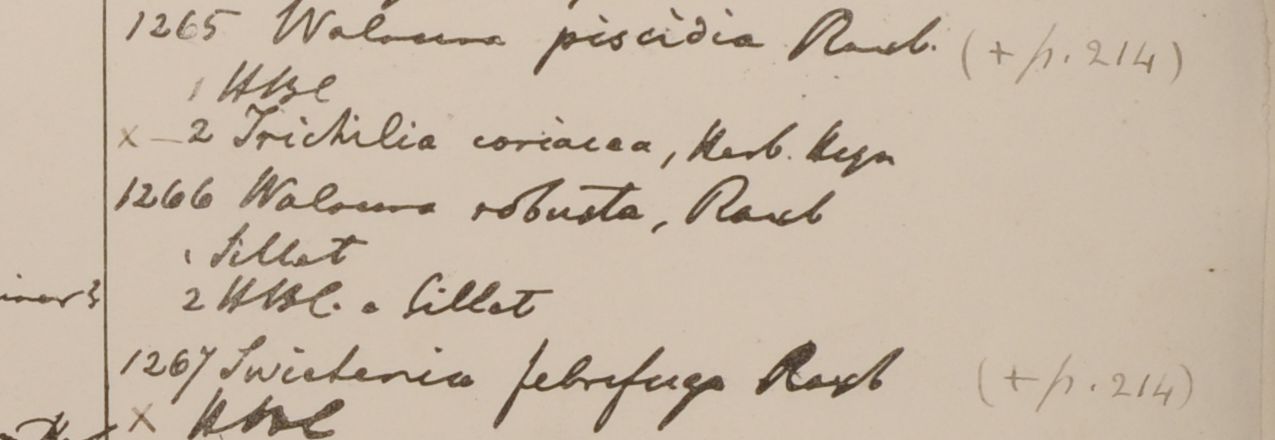 1265 Walsura piscidia Roxb. (+ p. 214)
1 HBC
x - 2 Trichilia coriacea, Herb. Heyn
1266 Walsura robusta, Roxb
1 Sillet
2 HBC. e Sillet
1267 Swietenia febrifuga Roxb (+ p. 214)
x HBC